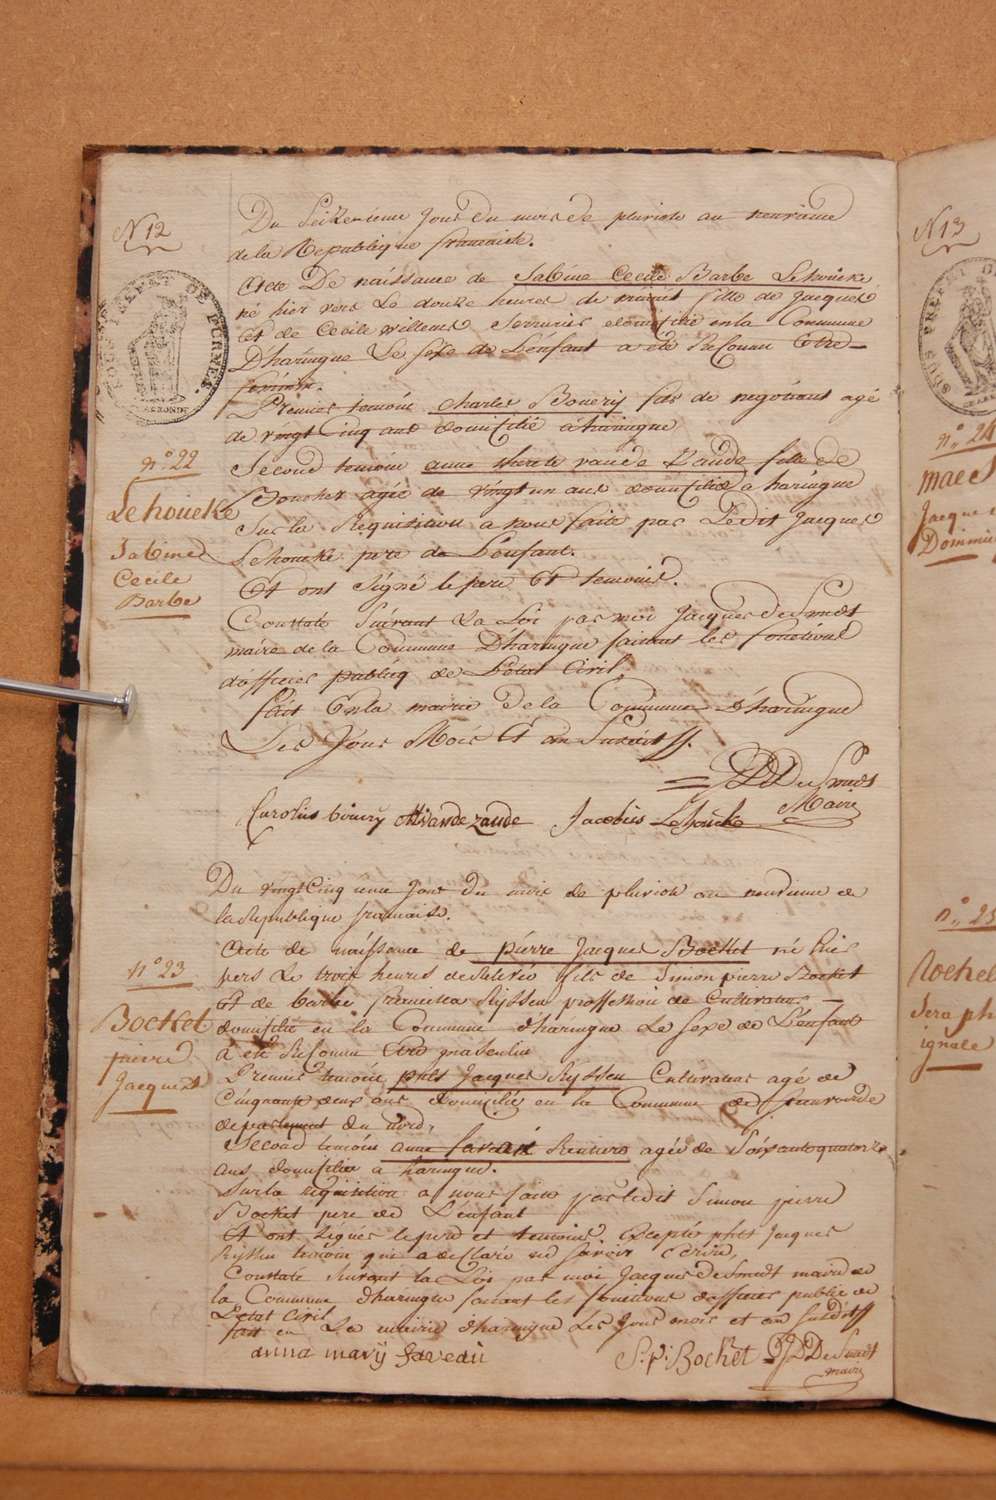 N 12
Du Seizemieme Jour du mois de pluviose an neuvieme
de la Republique francaise.
Acte De naissance de Sabine Cecile Barbe Lehoucke
né hier vers Le douze heures de minuit fille de Jacques
et de Cecile willems Serrurier domicilié en la Commune
Dharingue Le sexe de L'enfant a été Reconnu Etre
feminin.
Premier temoin Charles Bouery fils de negotiant agé
de vingt Cinq ans domicilié à haringue
Second temoin anne therese vande Zande fille de
Boucher agée de vingt un ans domiciliée a haringue
Sur la Requisition a nous faite par Ledit Jacques
Lehoucke pere de L'enfant.
Et ont Signé le pere Et temoins.
Constaté Suivant La Loi par moi Jacques DeSmedt
maire de la Commune Dharingue faisant les fonctions
d'officier publicq de L'etat Civil,
fait En la mairie De la Commune D'haringue
Les Jour Mois Et an Susdit
JDDeSmedt
Maire
Carolus bouery vandezande Jacobus Lehoucke
SOUS PREFET DE FURNES.
n.° 22
Lehoucke
Sabine
Cecile
Barbe
Du vingt Cinq ieme Jour Du mois de pluviose an neuvieme de
la Republique francaise.
Acte de naissance de pierre Jacques Bocket né hier
vers Le trois heures de fils de Simon pierre Bocket
et de barbe francisca Ryssen proffession de Cultivateur
domicilié en la Commune d'haringue Le sexe de L'enfant
a eté Reconnu Etre masculin
Premier temoin Jacques Ryssen Cultivateur agé de
Cinquante deux ans Domicilié en la Commune de
departement du nord,
Second temoin anne Rentiere agée de Soixante quatorze
ans domiciliée a haringue.
Sur la requisition a nous faite par ledit Simon pierre
Bocket pere de L'enfant
Et ont Signés le pere et temoins, excepté Jacques
Ryssen temoin qui a declaré ne savoir Ecrire,
Constaté Suivant la Loi par moi Jacques DeSmedt maire de
la Commune d'haringue faisant les fonctions d'officier public de
L'etat Civil
fait en La mairie d'haringue Les Jour mois et an Susdit
anna marij faveau S. p. Bocket JDDeSmedt
maire
n° 23
Bocket
pierre
Jacques
N 13
SOUS PREFET D
n.° 24
maes
Jacque
Domini
n.° 25
Rockel
Seraph
ignace